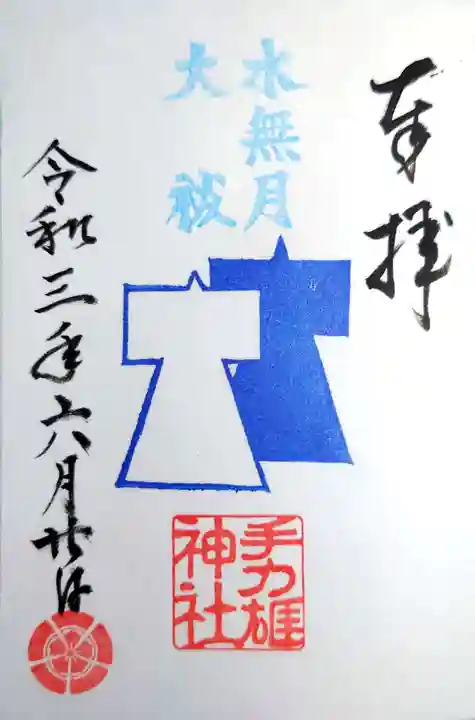 奉拝
水無月
大祓
手力雄
神社
令和三年六月廿日